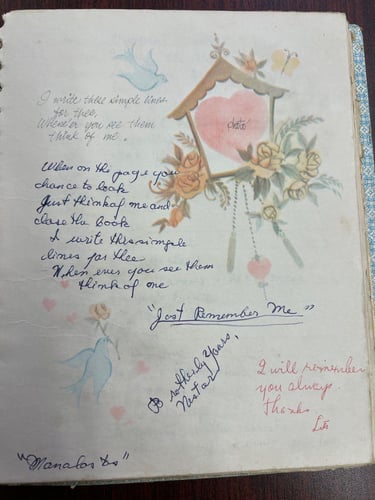 I write these simple lines
for thee,
Whene'er you see them
think of me.
photo
When on the page you
chance to look
Just think of me and
close the book
I write this simple
lines for thee
When ever you see them
think of me
"Just Remember Me"
Brotherly Yours,
Nestor
I will remember
you always.
Thanks